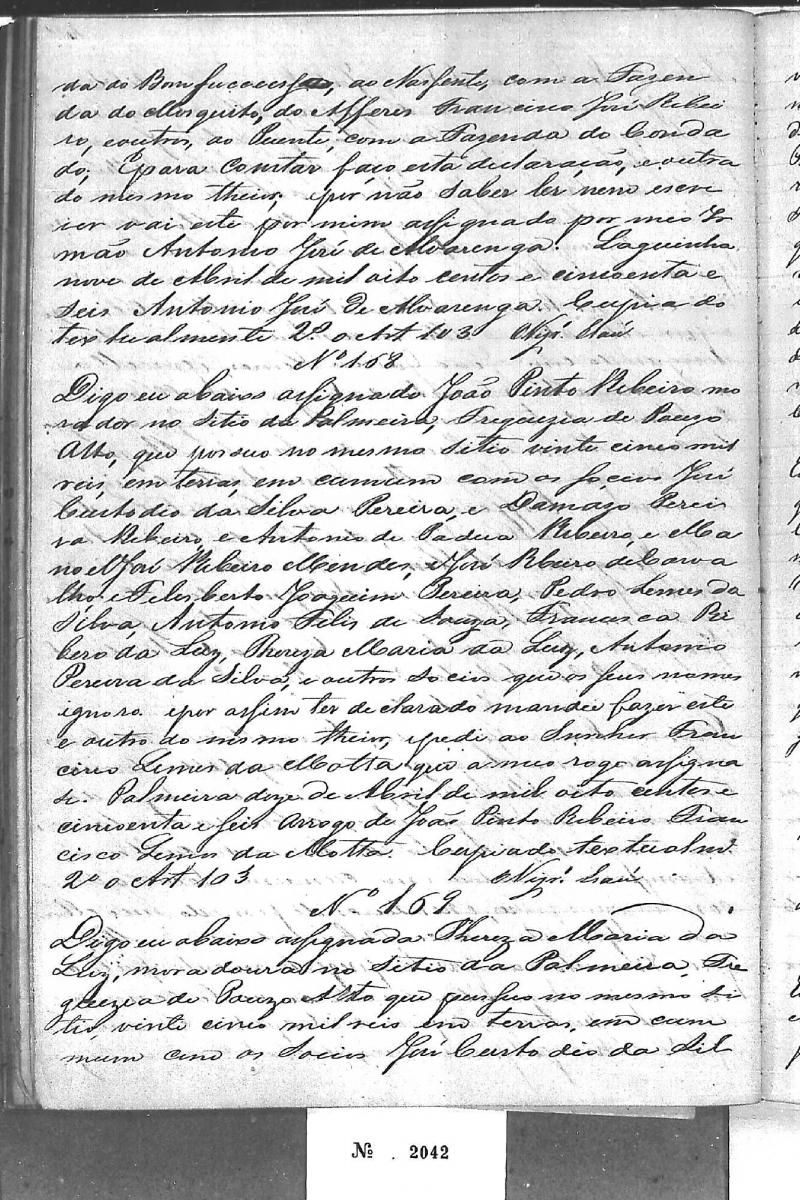 da do Bom successo, ao Nascente, com a Fazen
da do Mosquito, do Afferes Francisco José Ribei
ro, e outros, ao Puente, com a Fazenda do Conda
do; E para constar faço esta declaração, e outra
do mesmo theor, e por não saber ler, nem escre
ver vai este por mim assignado por meo Ir
mão Antonio José de Alvarenga. Laguinha
nove de Abril de mil oito centos e cincoenta e
seis Antonio José de Alvarenga. Cupia do
textualmente 2º o Art 103
Nº 168
Digo eu abaixo assignado João Pinto Ribeiro mo
rador no Sitio da Palmeira, Freguezia de Pouzo
Alto, que pursuo no mesmo Sitio vinte cinco mil
reis, em terras, em cumum com os Socios José
Custodio da Silva Pereira, e Damazo Perei
ra Ribeiro, e Antonio de Padua Ribeiro, e Ma
noel José Ribeiro Mendes, e José Ribeiro de Carva
lho e Felisberto Joaquim Pereira, Pedro Lemes da
Silva, Antonio Felis de Souza, Francisca Ri
bero da Luz, Thereza Maria da Luz, Antonio
Pereira da Silva, e outros Socios que os seus nomes
ignoro. e por assim ter declarado mandei fazer este
e outro do mesmo theor, e pedi ao Senhor Fran
cisco Lemes da Motta que a meo rogo assigna
se. Palmeira doze de Abril de mil oito centos e
cincoenta e seis Arrogo de João Pinto Ribeiro Fran
cisco Lemes da Motta. Cupiado textualme
2º o Art 103
Nº 169
Digo eu abaixo assignada Thereza Maria da
Luz, moradoura no Sitio da Palmeira, Fre
guezia de Pouzo Alto que pussuo no mesmo Si
tio, vinte cinco mil reis em terras, em cum
mum com os Socios José Custodio da Sil
Nº . 2042